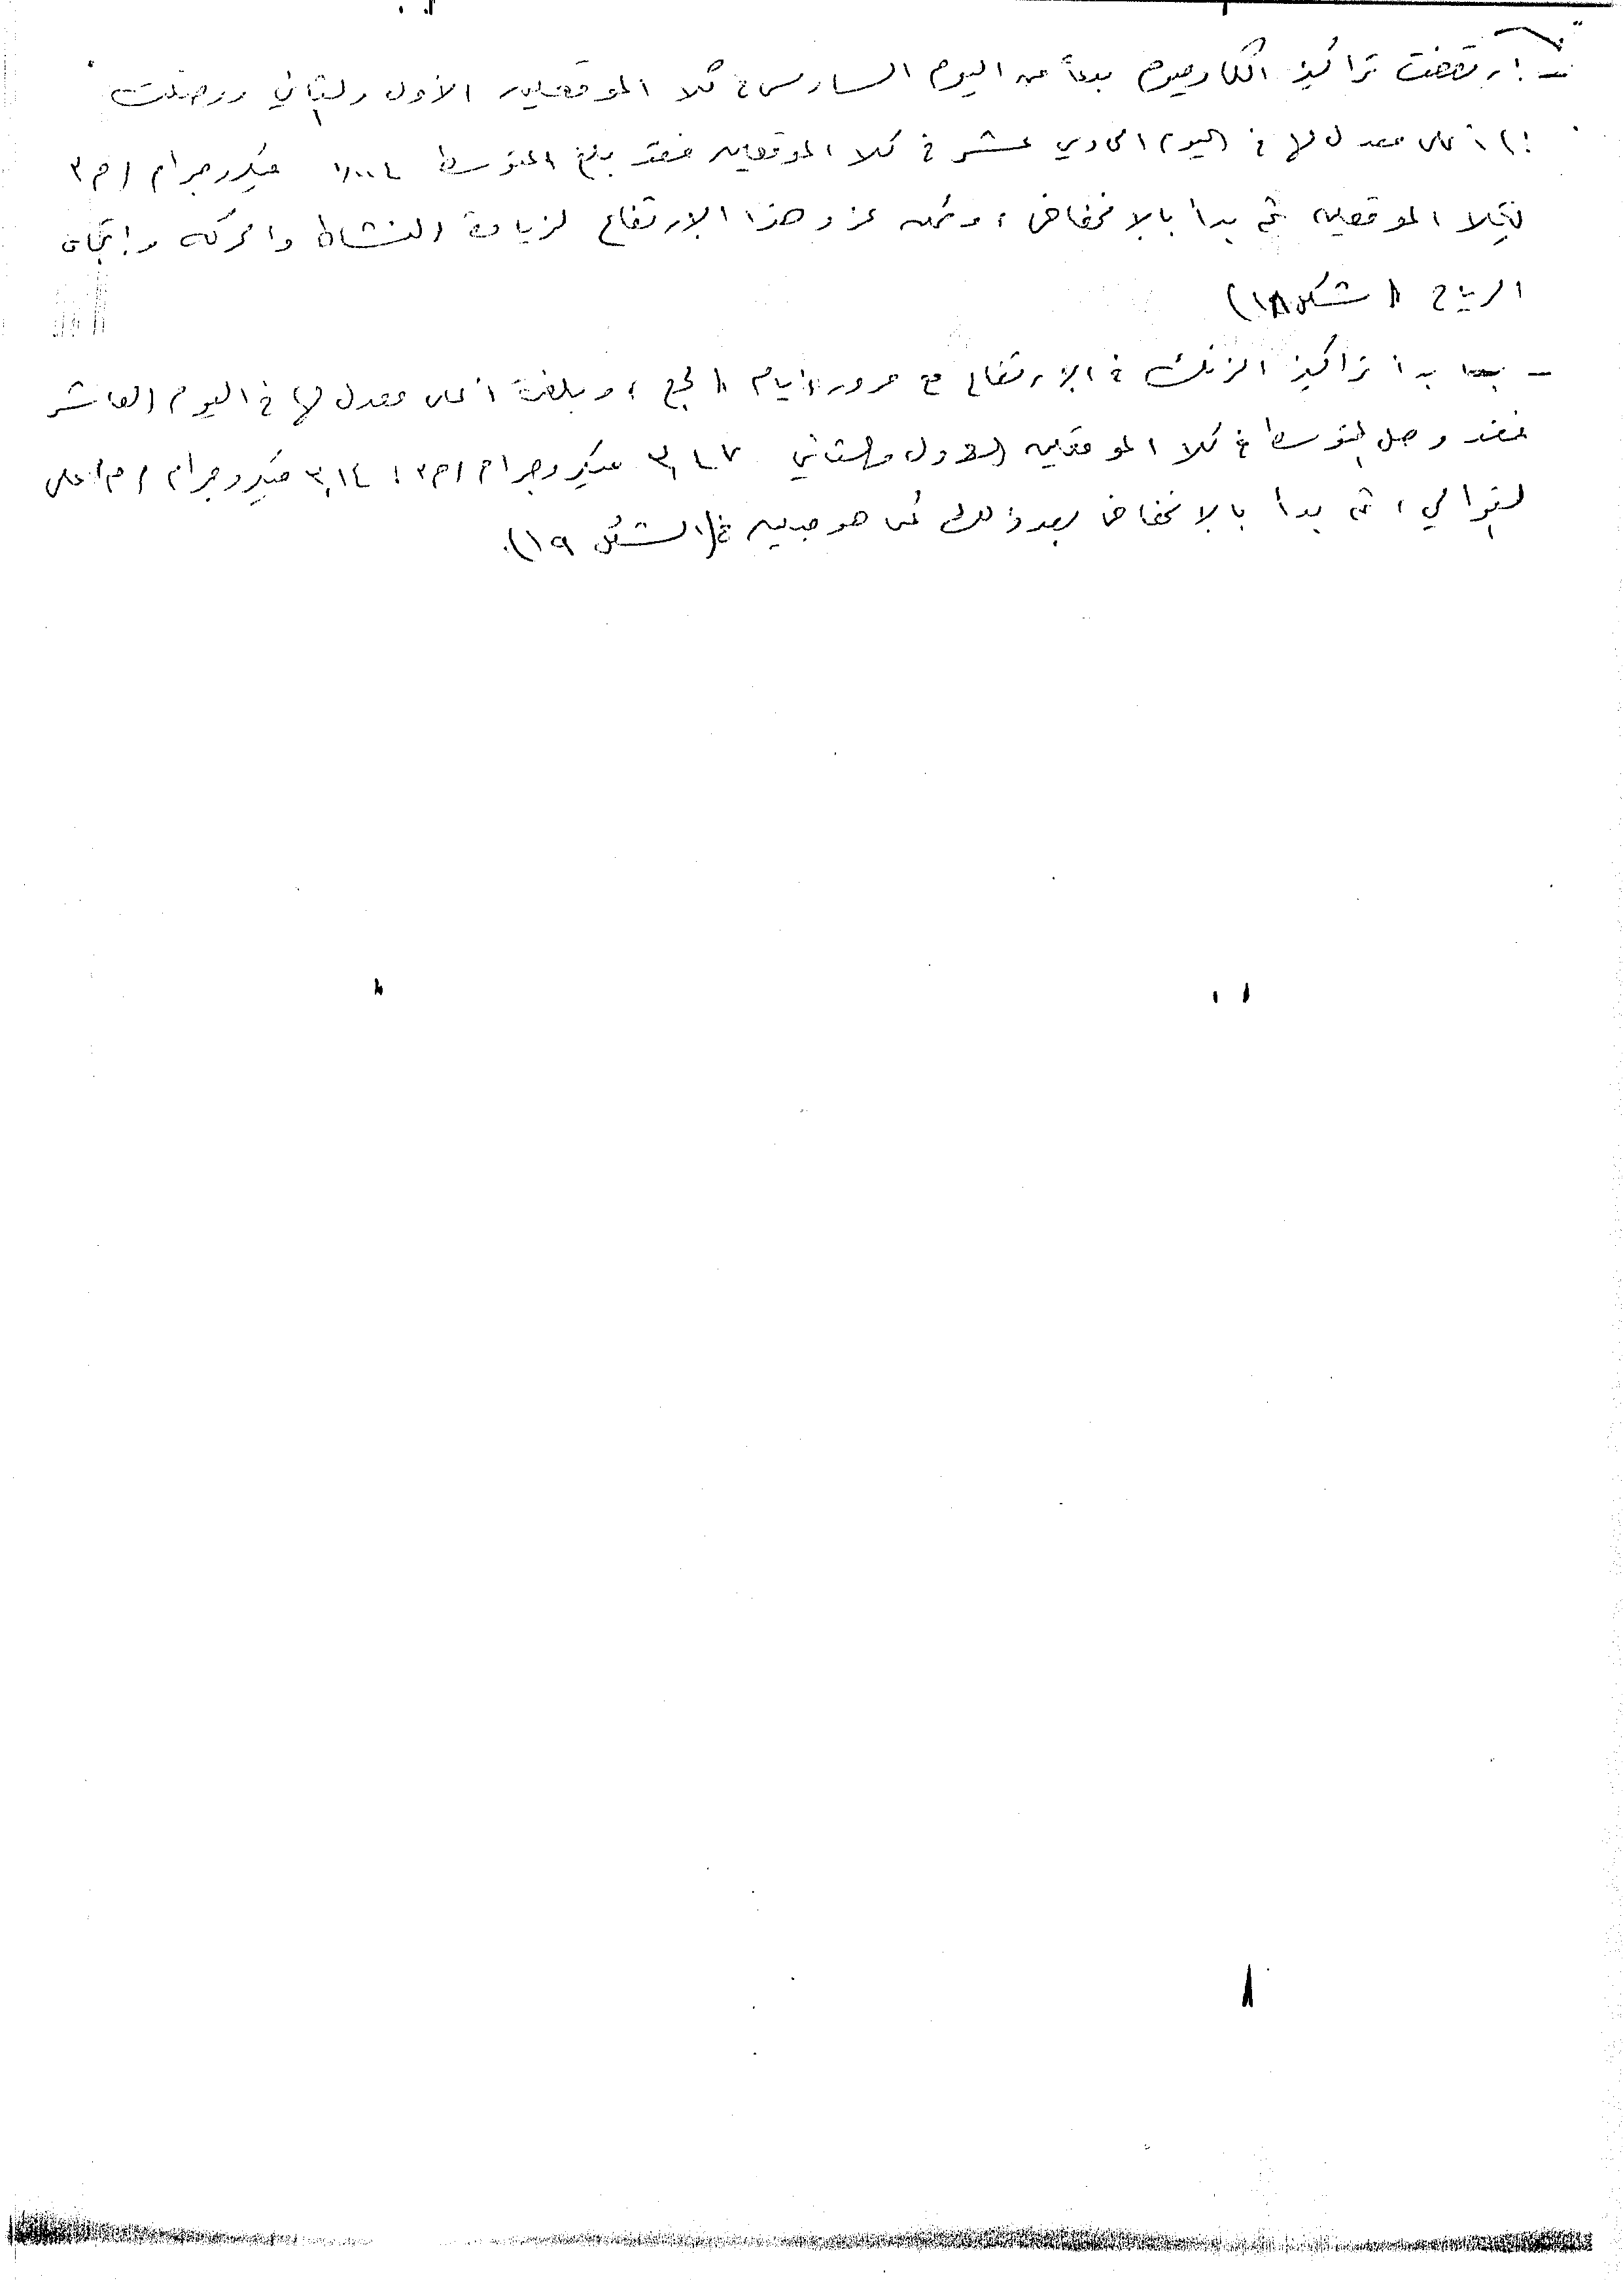 - ارتفعت تراكيز الكادميوم بدءاً من اليوم السادس في كلا الموقعين الأول والثاني ووصلت
إلى أعلى معدل لها في اليوم الحادي عشر في كلا الموقعين فقد بلغ المتوسط ميكروجرام /م٣
لكلا الموقعين ثم بدأ بالإنخفاض ، ويمكن عزو هذا الإرتفاع لزيادة النشاط والحركه واتجاه
الرياح (شكل ١٨)
- بدأ تراكيز الزنك في الإرتفاع مع مرور أيام الحج ، وبلغت أعلى معدل لها في اليوم العاشر
فقد وصل المتوسط في كلا الموقعين الأول والثاني ٣,٤٧ ميكروجرام /م٣ ، ٣,١٤ ميكروجرام /م٣ على
التوالي ، ثم بدأ بالإنخفاض بعد ذلك كما هو مبين في (الشكل ١٩).